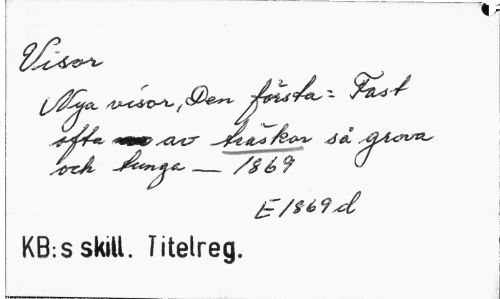 Visor
Nya visor, Den första: Fast
ofta av träskor så grova
och tunga — 1869
E 1869 d
KB:s skill. Titelreg.